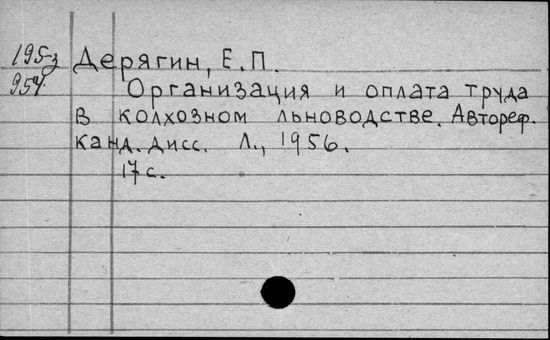 195-3 Дерягин, Е.П.
954. Организация и оплата труда
в колхозном льноводстве. Автореф.
канд. дисс. Л., 1956.
17 с.